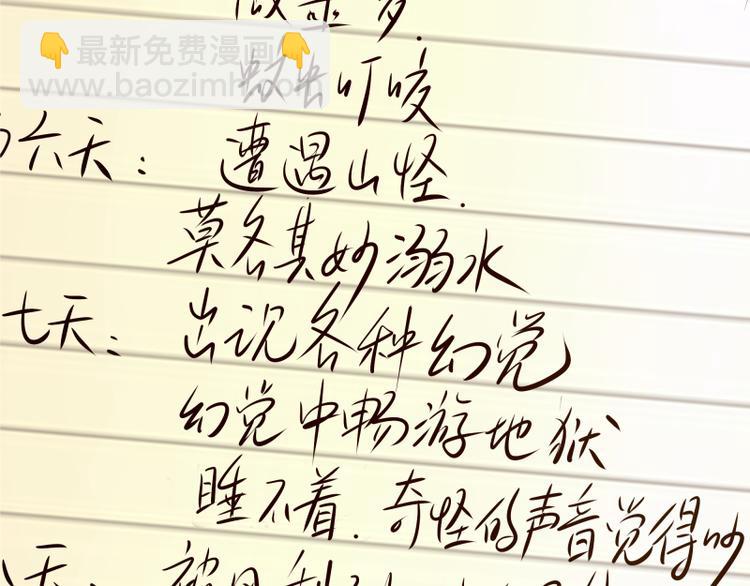 做噩梦.
最新免费漫画
www.baozimh.com
蚊虫叮咬
第六天：遭遇山怪.
莫名其妙溺水
七天：出现各种幻觉
幻觉中畅游地狱
睡不着.奇怪的声音觉得吵
八天：被